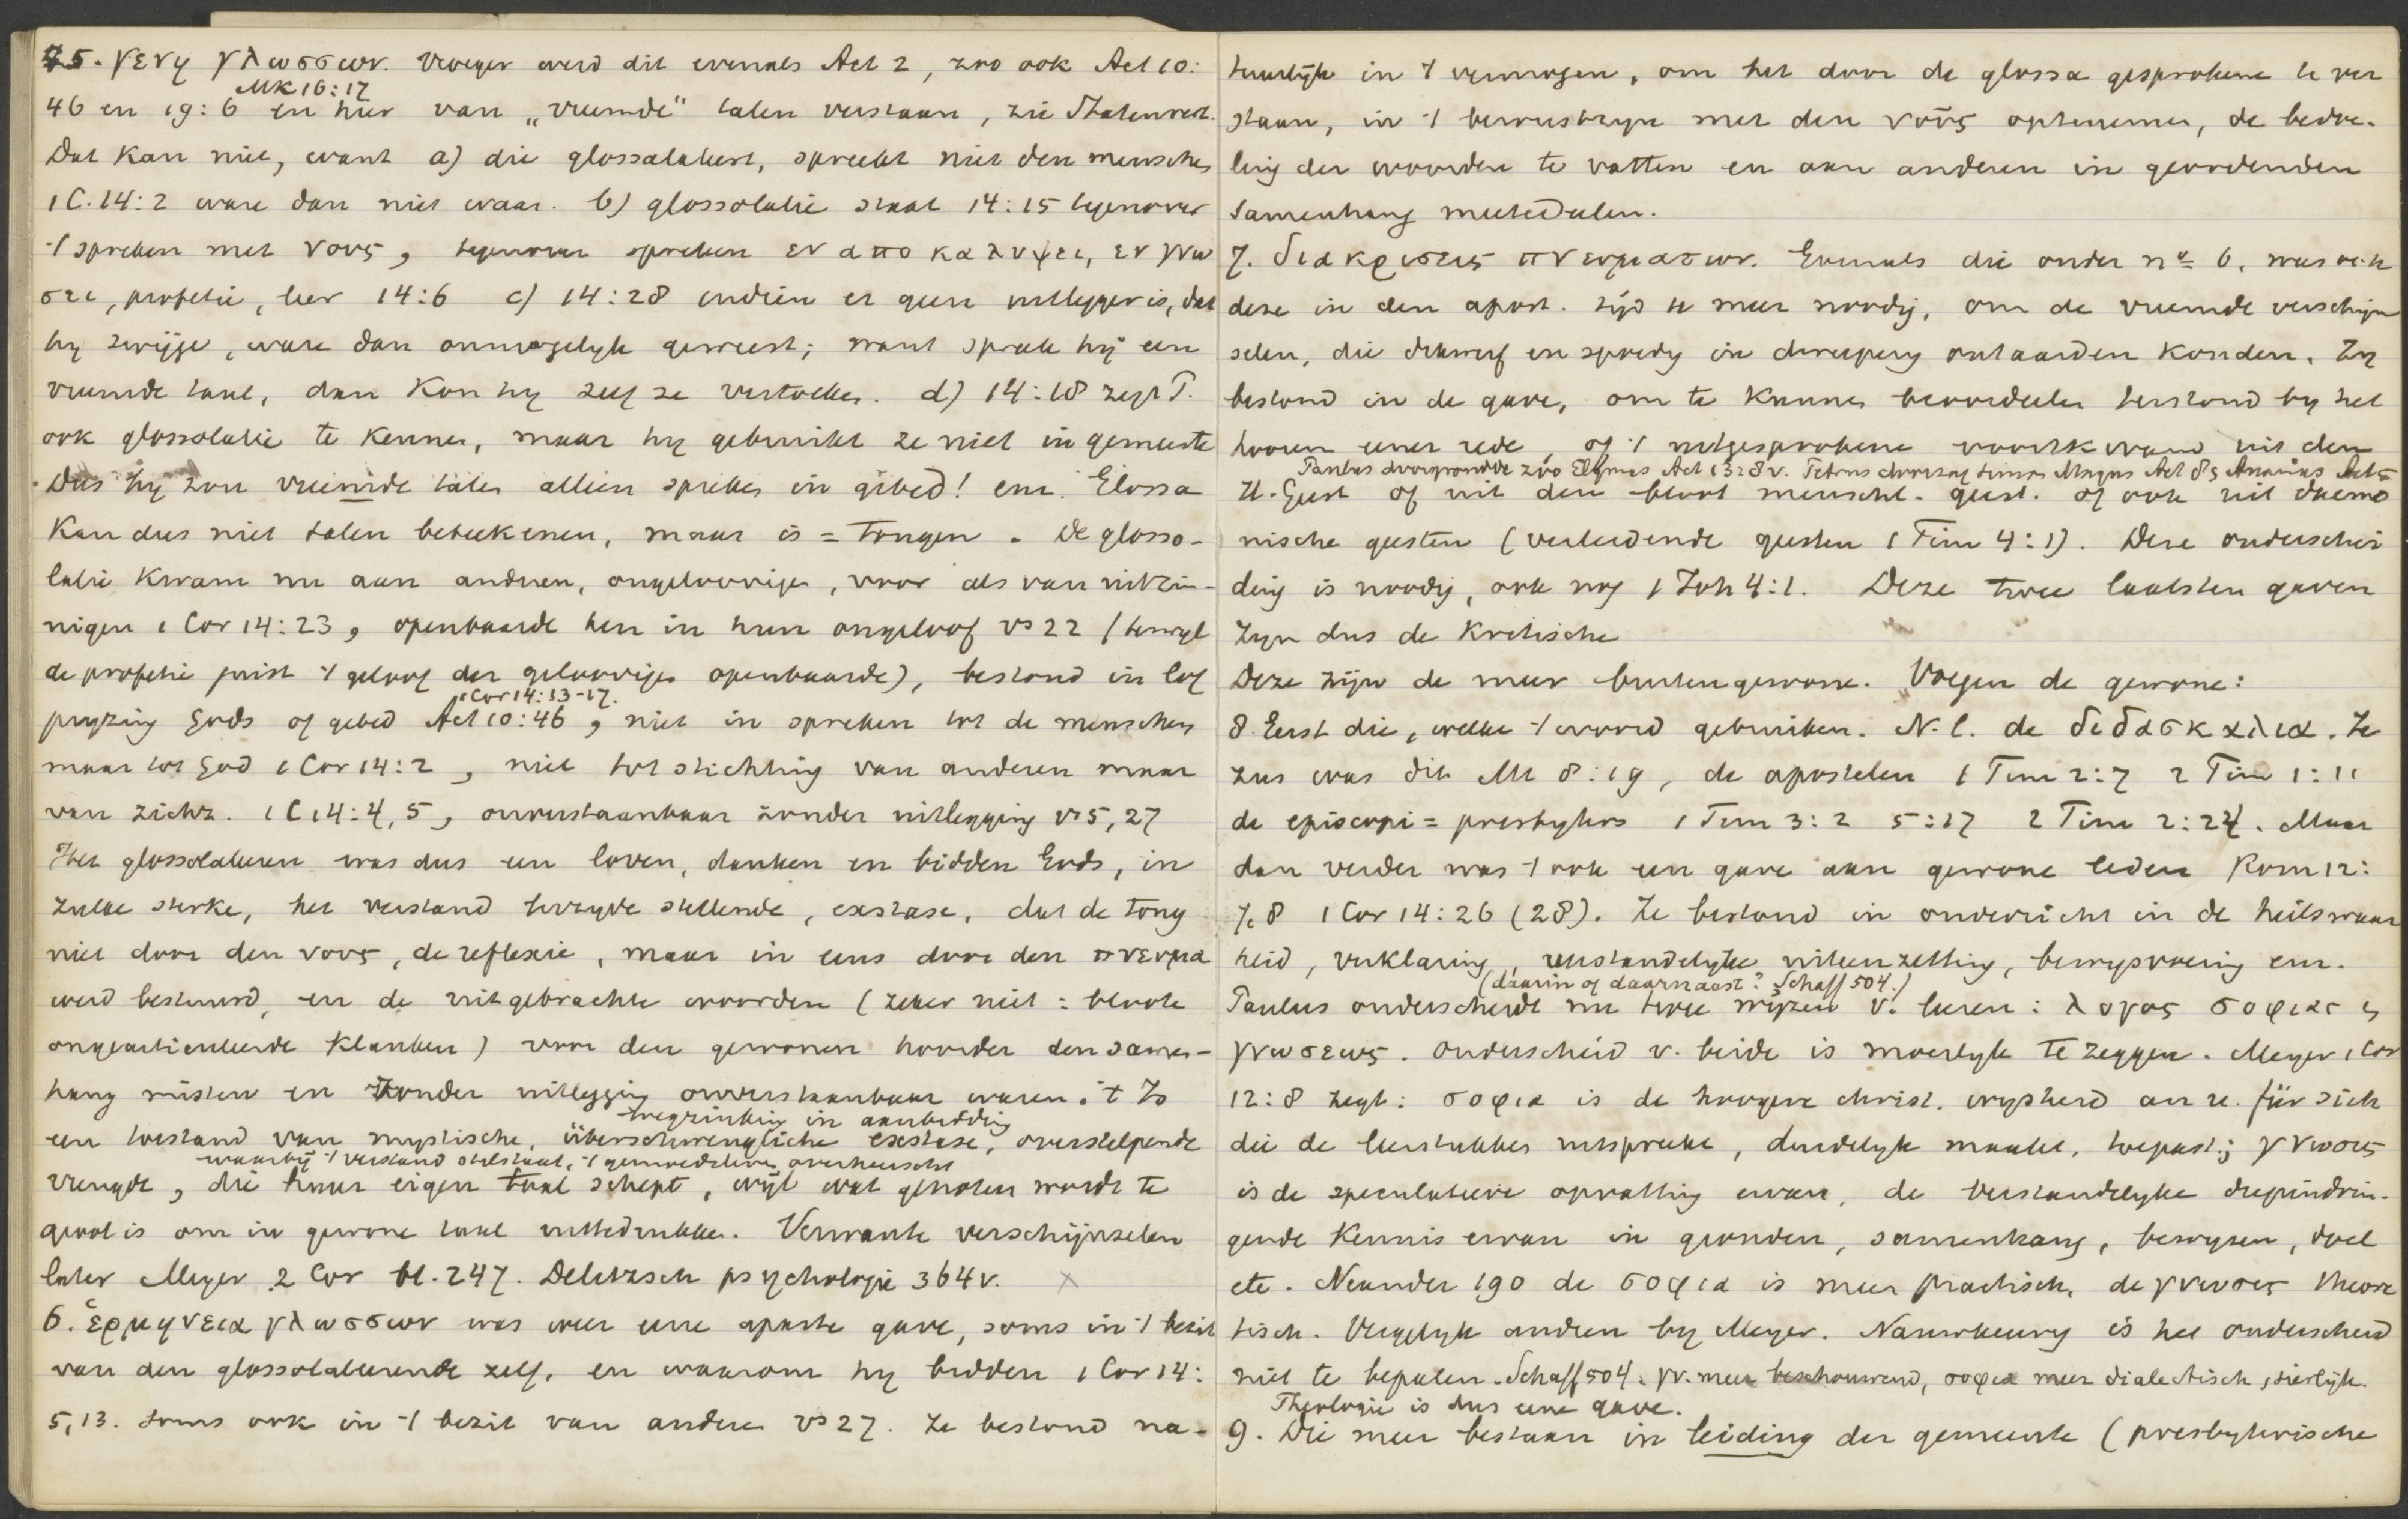 5. γενη γλωσσων. Vroeger werd dit evenals Act 2, zoo ook Act 10:
Mk 16:17
46 en 19:6 en hier van „vreemde" talen verstaan, zie Statenvert.
Dat kan niet, want a) die glossolaleert, spreekt niet den menschen
1 C. 14:2 ware dan niet waar. b) glossolalie staat 14:15 tegenover
't spreken met νους, tegenover spreken εν αποκαλυψει, εν γνω
σει, profetie, leer 14:6 c) 14:28 indien er geen uitlegger is, dat
hy zwijge, ware dan onmogelyk geweest; want sprak hij een
vreemde taal, dan kon hy zelf ze vertolken. d) 14:18 zegt P.
ook glossolalie te kennen, maar hy gebruikt ze niet in gemeente
Dus hy zou vreemde talen alleen spreken in gebed! enz. Glossa
kan dus niet talen beteekenen, maar is = tongen. De glosso-
lalie kwam nu aan andren, ongeloovige, voor als van uitzin-
nigen 1 Cor 14:23, openbaarde hen in hun ongeloof vs 22 (terwyl
de profetie juist 't geloof der geloovigen openbaarde), bestond in lof
1 Cor 14:13-17.
pryzing Gods of gebed Act 10:46, niet in spreken tot de menschen
maar tot God 1 Cor 14:2, niet tot stichting van anderen maar
van zichz. 1 C 14:4, 5, onverstaanbaar zonder uitlegging vs 5, 27
Het glossolaleren was dus een loven, danken en bidden Gods, in
zulke sterke, het verstand terzyde stellende, exstase, dat de tong
niet door den νους, de reflexie, maar in eens door den πνευμα
werd bestuurd, en de uitgebrachte woorden (zeker niet: bloote
ongearticuleerde klanken) voor den gewonen hoorder den samen-
hang misten en zonder uitlegging onverstaanbaar waren. 't Is
wegzinking in aanbidding
een toestand van mystische, überschwengliche exstase, overstelpende
waarbij 't verstand stilstaat, 't gemoedsleven overheerscht
vreugde, die haar eigen taal schept, wijl wat genoten wordt te
groot is om in gewone taal uittedrukken. Verwante verschijnselen
later Meyer 2 Cor bl. 247. Delitzsch psychologie 364 v. ×
6. ἑρμηνεια γλωσσων was weer eene aparte gave, soms in 't bezit
van den glossolaleerende zelf, en waarom hy bidden 1 Cor 14:
5, 13. soms ook in 't bezit van andere vs 27. Ze bestond na-
tuurlijk in 't vermogen, om het door de glossa gesprokene te ver
staan, in 't bewustzyn met den νοῦς optenemen, de bedoe-
ling der woorden te vatten en aan anderen in geordenden
samenhang meetedeelen.
7. διακρισεις πνευματων. Evenals die onder no 6. was ook
deze in den apost. tijd te meer noodig, om de vreemde verschijn
selen, die dikwerf en spoedig in dweepery ontaarden konden. Zy
bestond in de gave, om te kunnen beoordeelen terstond by het
hooren eener rede of 't uitgesprokene voortkwam uit den
Paulus doorgrondde zóo Elymas Act 13:8 v. Petrus doorzag Simon Magus Act 8, Ananias Act 5
H. Geest of uit den bloot menschl. geest. of ook uit daemo
nische geesten (verleidende geesten 1 Tim 4:1). Deze onderschei
ding is noodig, ook nog 1 Joh 4:1. Deze twee laatsten gaven
zyn dus de kritische
Deze zijn de meer buitengewone. Volgen de gewone:
8. Eerst die, welke 't woord gebruiken. N.l. de διδασκαλια. Je
zus was dit Mt 8:19, de apostelen 1 Tim 2:7 2 Tim 1:11
de episcopi = presbyters 1 Tim 3:2 5:17 2 Tim 2:24. Maar
dan verder was 't ook een gave aan gewone leden Rom 12:
7, 8 1 Cor 14:26 (28). Ze bestond in onderricht in de heilswaar
heid, verklaring, verstandelyke uiteenzetting, bewysvoering enz.
(daarin of daarnaast? Schaff 504.)
Paulus onderscheidt nu twee wijzen v. leeren: λογος σοφιας en
γνωσεως. Onderscheid v. beide is moeilyk te zeggen. Meyer 1 Cor
12:8 zegt: σοφια is de hoogere christ. wysheid an u. für sich
die de leerstukken uitspreekt, duidelyk maakt, toepast; γνωσις
is de speculatieve opvatting ervan, de verstandelyke diepindrin-
gende kennis ervan in gronden, samenhang, bewyzen, doel
etc. Neander 190 de σοφια is meer practisch, de γνωσις theore
tisch. Vergelyk andren by Meyer. Nauwkeurig is het onderscheid
niet te bepalen. Schaff 504. γν. meer beschouwend, σοφια meer dialectisch, sierlijk.
Theologie is dus eene gave.
9. Die meer bestaan in leiding der gemeente (presbyterische